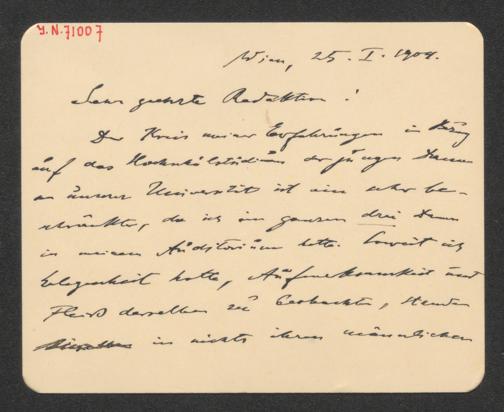 J.N. 71007
Wien, 25. I. 1904.
Sehr geehrte Redaktion!
Der Kreis meiner Erfahrungen in Bezug
auf das Hochschulstudium der jungen Damen
an unserer Universität ist ein sehr be-
schränkter, da ich im ganzen drei Damen
in meinem Auditorium hatte. Soweit ich
Gelegenheit hatte, Aufmerksamkeit und
Fleiß derselben zu beobachten, standen
in nichts ihren männlichen